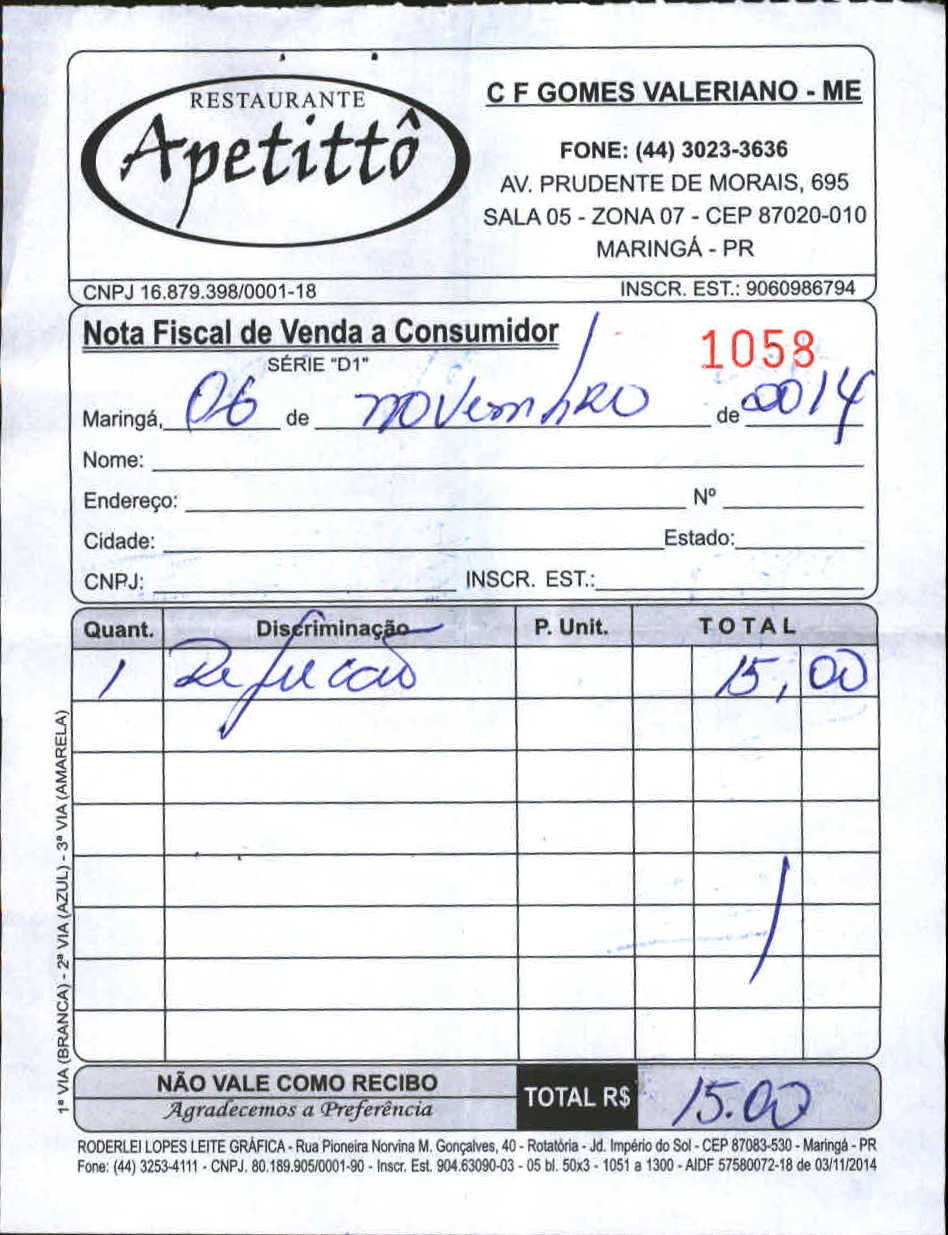 RESTAURANTE
Apetittô
C F GOMES VALERIANO - ME
FONE: (44) 3023-3636
AV. PRUDENTE DE MORAIS, 695
SALA 05 - ZONA 07 - CEP 87020-010
MARINGÁ - PR
CNPJ 16.879.398/0001-18 INSCR. EST.: 9060986794
Nota Fiscal de Venda a Consumidor 1058
SÉRIE "D1"
Maringá, 06 de novembro de 2014
Nome:
Endereço: Nº
Cidade: Estado:
CNPJ: INSCR. EST.:
Quant. Discriminação P. Unit. TOTAL
1 Refeicao 15,00
1ª VIA (BRANCA) - 2ª VIA (AZUL) - 3ª VIA (AMARELA)
NÃO VALE COMO RECIBO
Agradecemos a Preferência
TOTAL R$ 15.00
RODERLEI LOPES LEITE GRÁFICA - Rua Pioneira Norvina M. Gonçalves, 40 - Rotatória - Jd. Império do Sol - CEP 87083-530 - Maringá - PR
Fone: (44) 3253-4111 - CNPJ. 80.189.905/0001-90 - Inscr. Est. 904.63090-03 - 05 bl. 50x3 - 1051 a 1300 - AIDF 57580072-18 de 03/11/2014